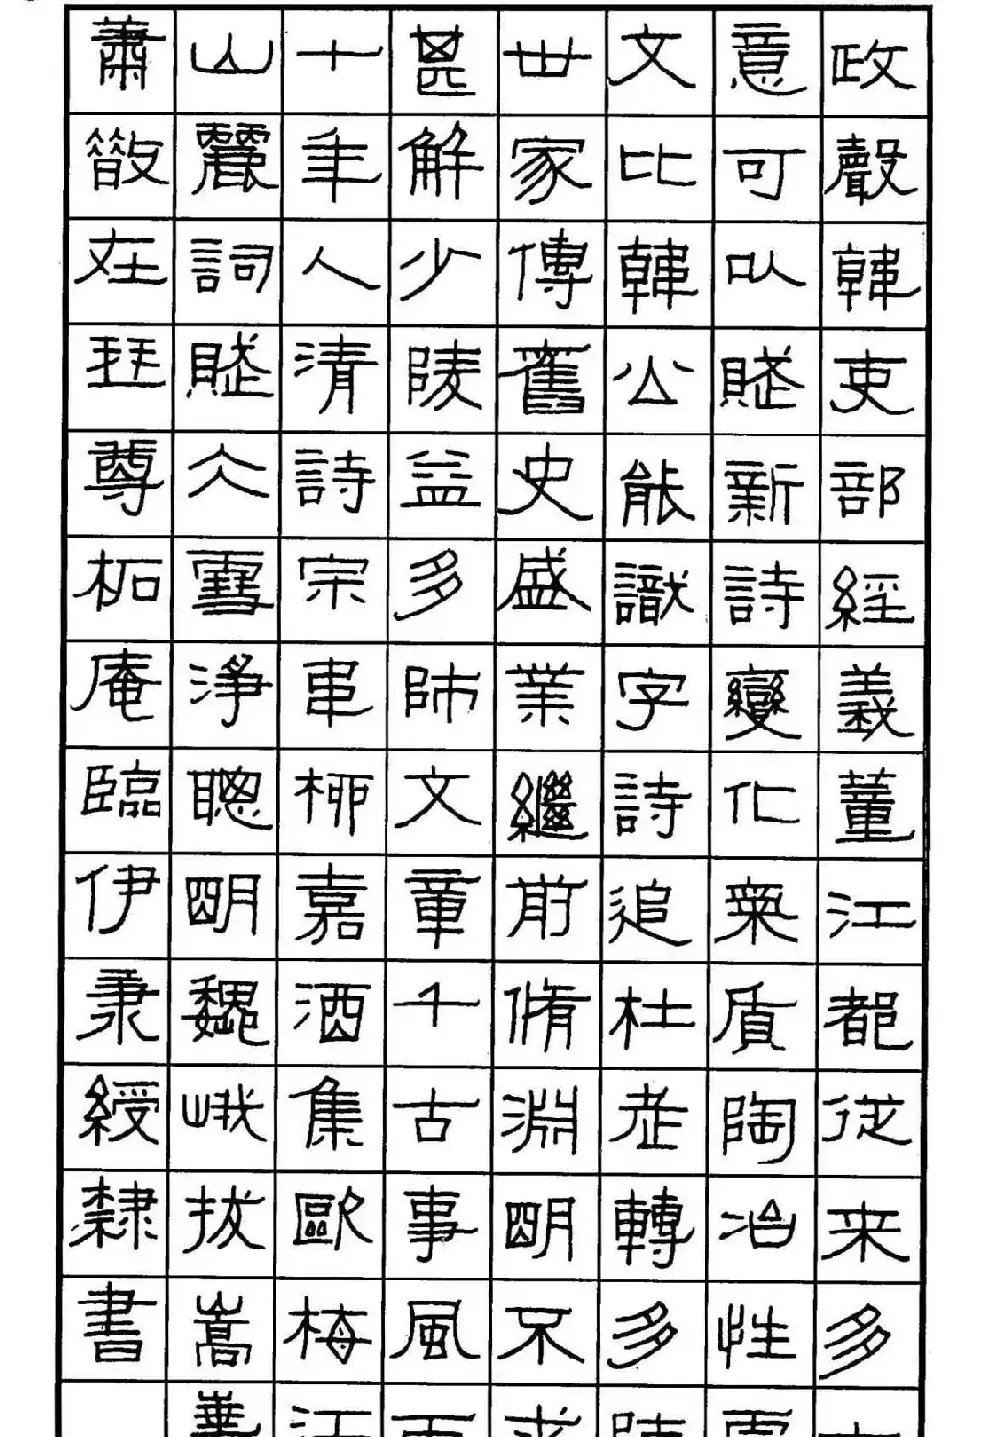 政聲韓吏部經義董江都從来多
意可以賦新詩變化氣質陶冶性
文比韓公能識字詩追杜老轉多
世家傳舊史盛業繼前脩淵明不求
甚解少陵益多師文章千古事風雨
十年人清詩宗韋柳嘉酒集歐梅江
山麗詞賦仌雪淨聰明魏峨拔嵩華
蕭散在琴尊柘庵臨伊秉綬隸書